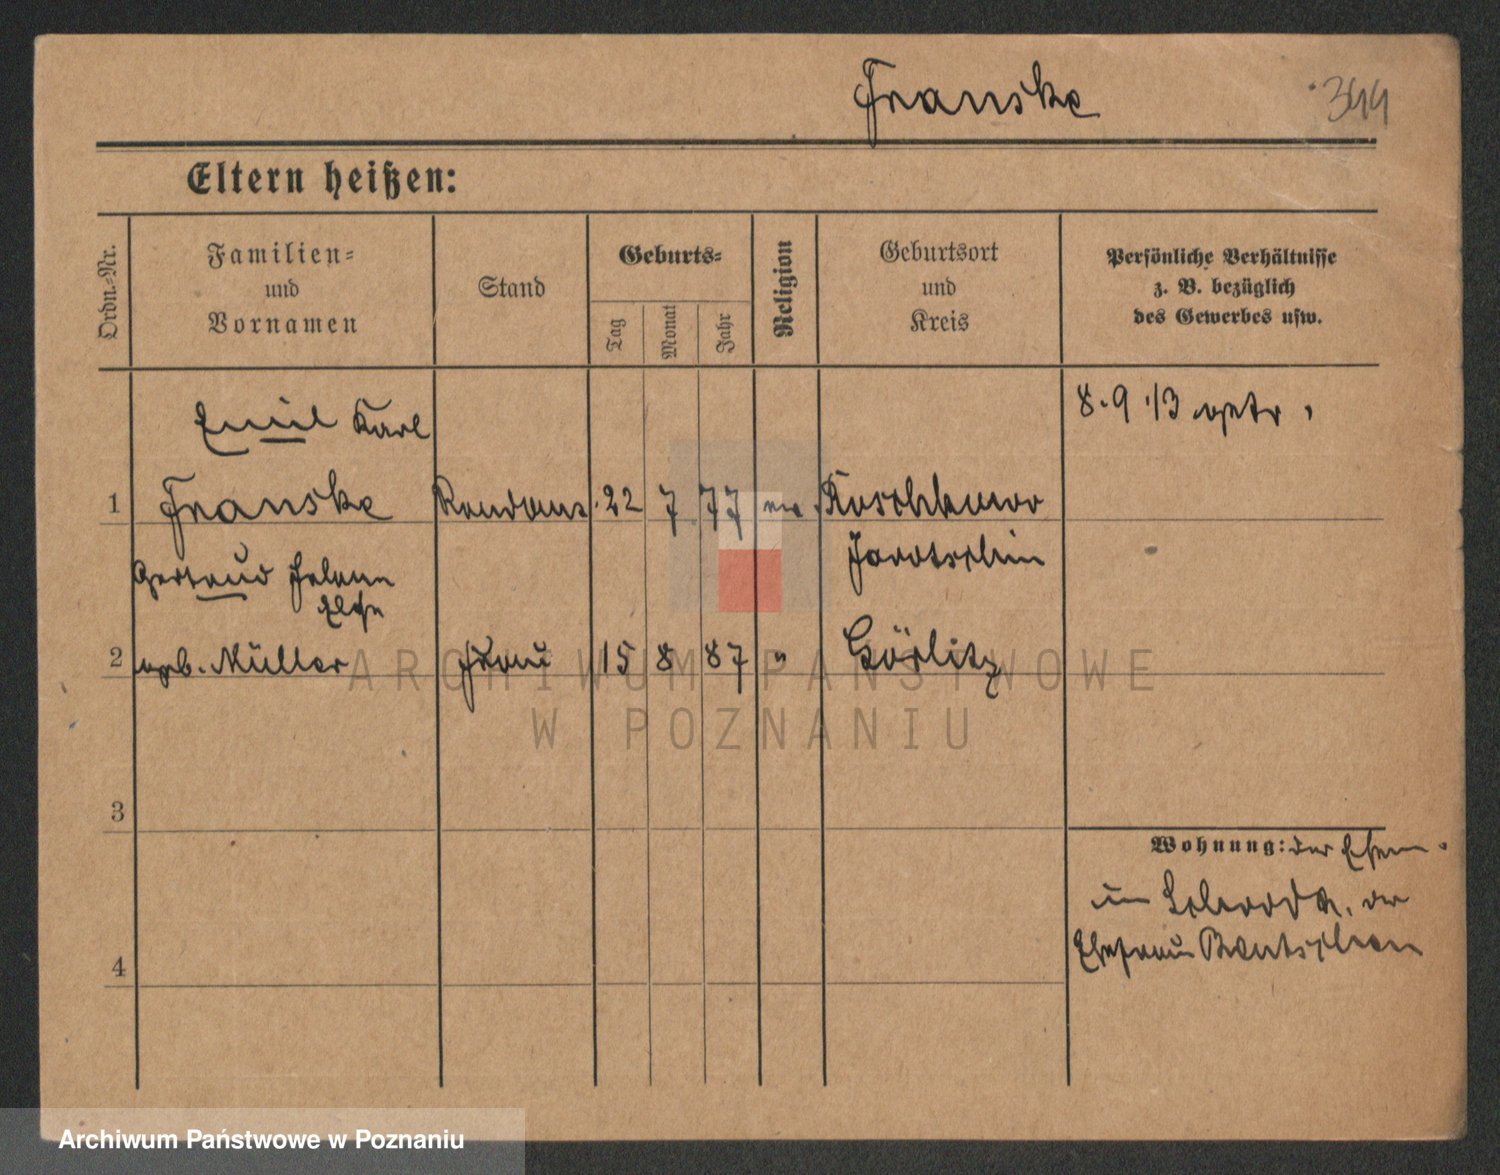 Franske 344
Eltern heißen:
Ordn.-Nr.
Familien=
und
Vornamen
Stand
Geburts=
Tag
Monat
Jahr
Religion
Geburtsort
und
Kreis
Persönliche Verhältnisse
z. B. bezüglich
des Gewerbes usw.
8.9.13 getr.
Emil Karl
1 Franske 22 7 77 ev. Koschkowo
Jarotschin
Gertrud Helene
Else
2 geb. Müller Frau 15 8 87 " Görlitz
3
Wohnung: der Ehem.
in Schroda, der
4 Ehefrau Bentschen
ARCHIWUM PAŃSTWOWE
W POZNANIU
Archiwum Państwowe w Poznaniu